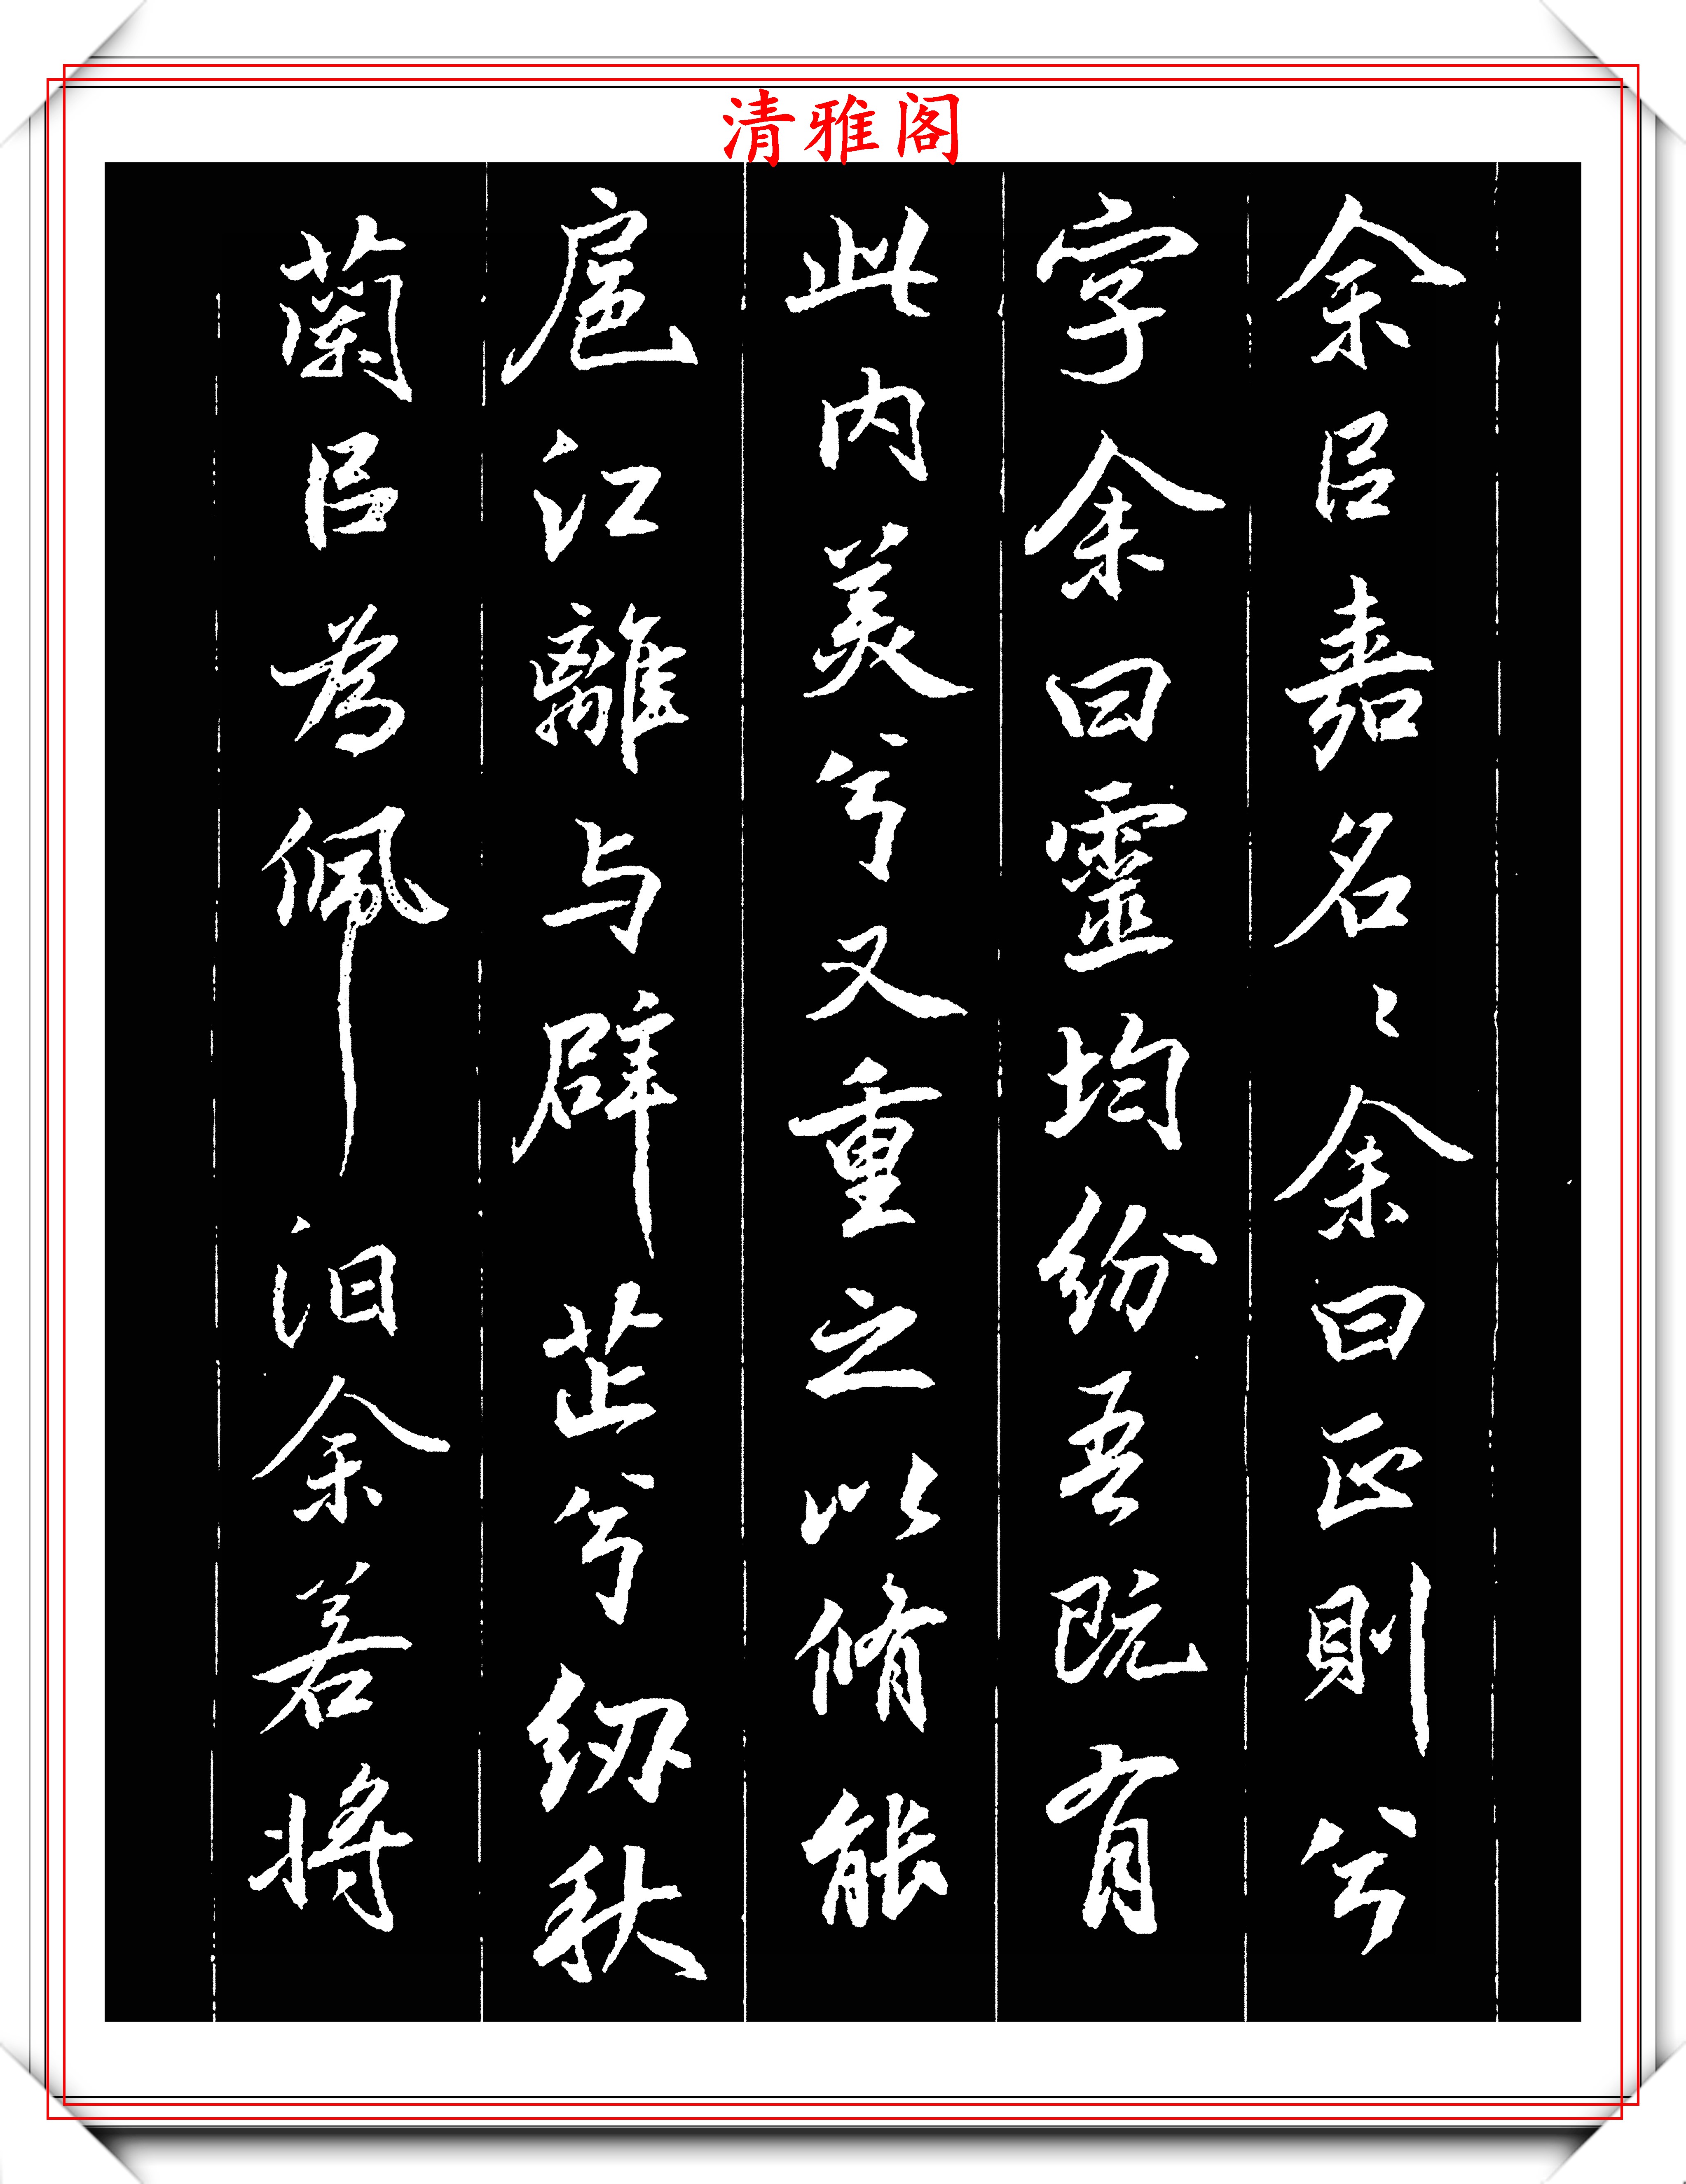 清雅阁
余以嘉名〻余曰正則兮
字余曰靈均紛吾既有
此內美兮又重之以脩能
扈江離与辟芷兮紉秋
蘭以為佩汨余若將